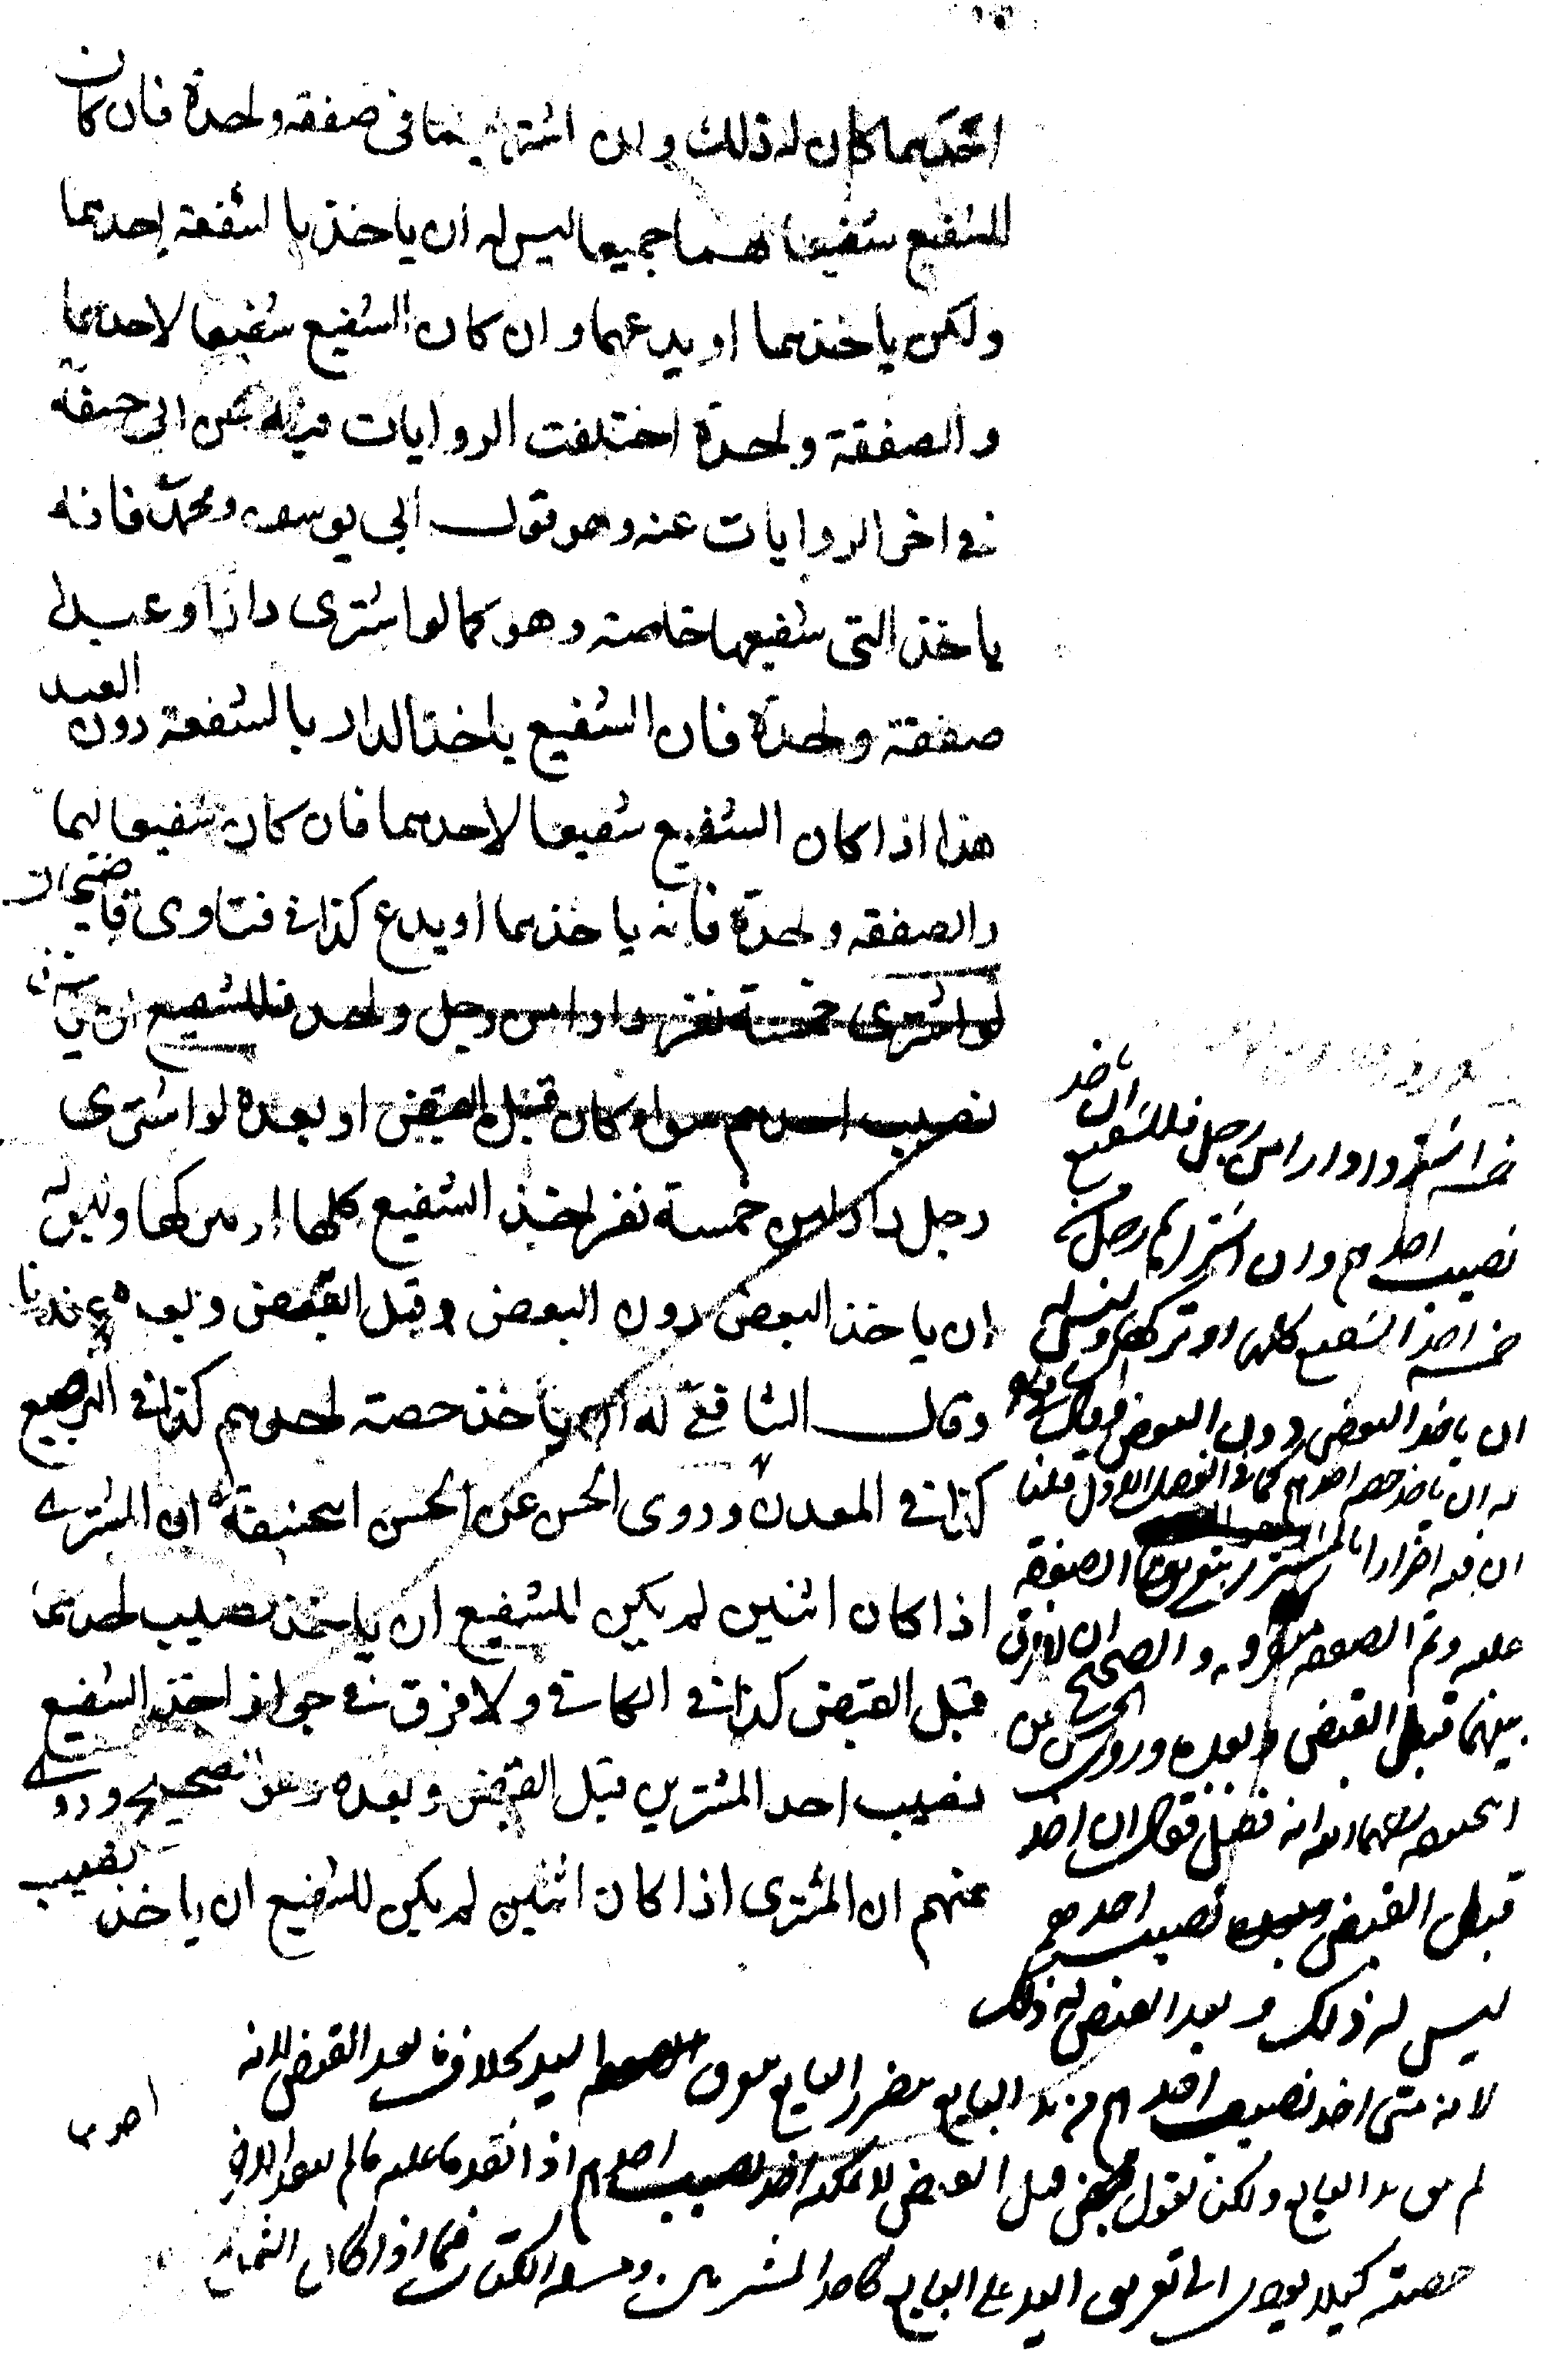 احديهما كان له ذلك وان اشتريهما في صفقة واحدة فان كان
للشفيع شفيعا لهما جميعا ليس له ان ياخذ بالشفعة احديهما
ولكن ياخذهما او يدعهما وان كان الشفيع شفيعا لاحديهما
والصفقة واحدة اختلفت الروايات فيه عن ابي حنيفة
في اخر الروايات عنه وهو قول ابي يوسف ومحمد فانه
ياخذ التي شفيعها خاصة وهو كما لو اشترى دارا وعبدا
صفقة واحدة فان الشفيع ياخذ الدار بالشفعة دون العبد
هذا اذا كان الشفيع شفيعا لاحديهما فان كان شفيعا لهما
والصفقة واحدة فانه ياخذهما او يدع كذا في فتاوى قاضيخان
لو اشترى خمسة نفر دارا من رجل واحد فللشفيع ان ياخذ
نصيب احدهم سواء كان قبل القبض او بعده لو اشترى
رجل دارا من خمسة نفر اخذ الشفيع كلها او تركها وليس له
ان ياخذ البعض دون البعض وقبل القبض وبعده عندنا
وقال الشافعي له ان ياخذ حصة احدهم كذا في
كذا في المعدن وروى الحسن عن ابيحنيفة ان المشتري
اذا كان اثنين لم يكن للشفيع ان ياخذ نصيب احدهما
قبل القبض كذا في الكافي ولا فرق في جواز اخذ الشفيع
نصيب احد المشترين قبل القبض وبعده وهو الصحيح وروى
عنهم ان المشتري اذا كان اثنين لم يكن للشفيع ان ياخذ نصيب
خمسة اشتروا دارا من رجل فللشفيع ان ياخذ
نصيب احدهم وان اشتراها رجل من
خمسة اخذ الشفيع كلها او تركها وليس له
ان ياخذ البعض دون البعض وقال الشافعي
له ان ياخذ حصة احدهم كما في الفصل الاول قلنا
ان فيه اضرارا بالمشتري بتفريق الصفقة
عليه وثم الصفقة متفرقة والصحيح ان لا فرق
بينهما قبل القبض وبعده وروى الحسن عن
ابيحنيفة انه فصل فقال ان اخذ
قبل القبض نصيب احدهم
ليس له ذلك وبعد القبض له ذلك
لانه متى اخذ نصيب احدهم من يد البايع يتضرر البايع بتفرق اليد بخلاف ما بعد القبض لانه
لم يبق يد البايع ولكن نقول قبل القبض لا يمكنه اخذ نصيب احدهم اذا نقد ما عليه ما لم ينقد الاخر
حصته كيلا يؤدي الى تفريق اليد على البايع كاحد المشتريين ومسئلة الكتاب فيما اذا كان